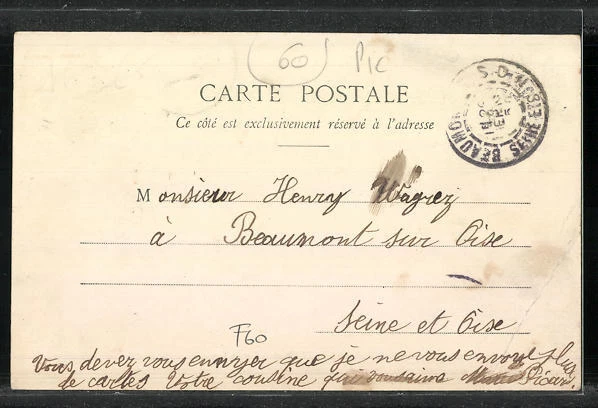 60 Pic
CARTE POSTALE
Ce côté est exclusivement réservé à l'adresse
Monsieur Henry Wagrez
à Beaumont sur Oise
Seine et Oise
F60
Vous devez vous ennuyer que je ne vous envoye plus
de cartes Votre cousine Picard